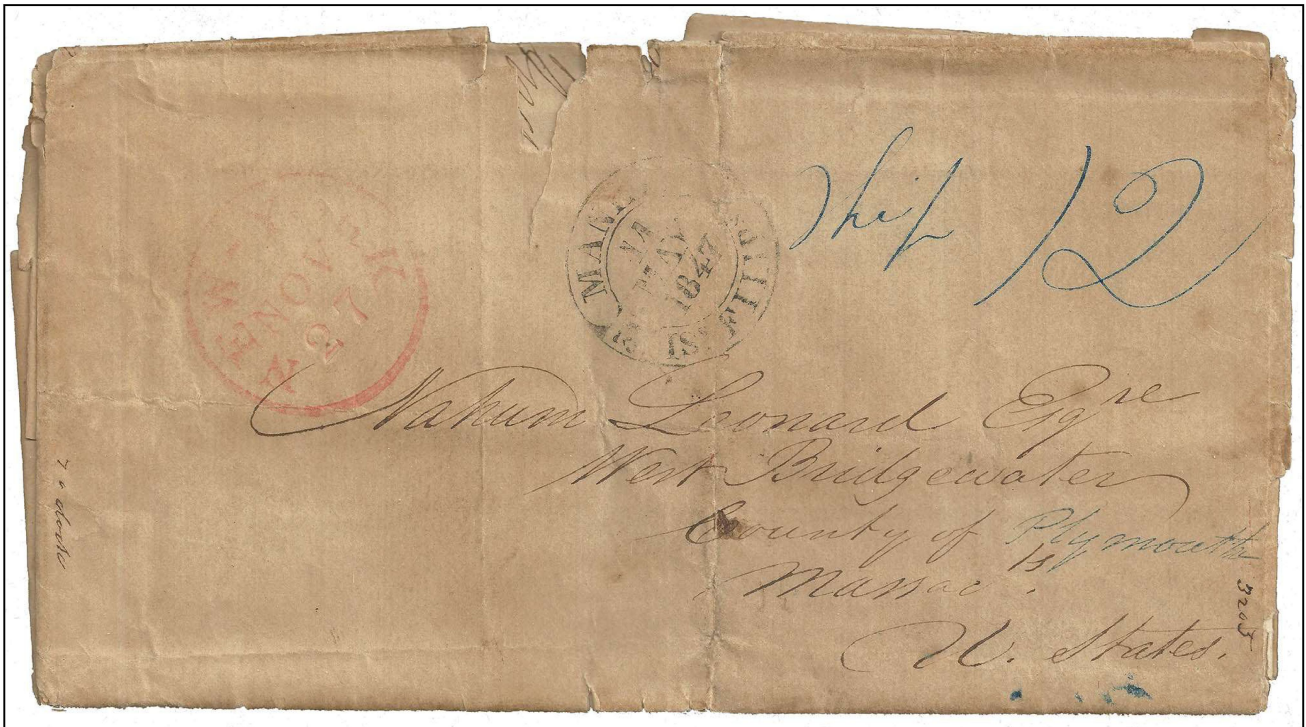 Ship 12
NEW YORK
NOV
27
MAY
1847
Nahum Leonard Esqre
West Bridgewater
County of Plymouth
Massacts.
U. States.
3205